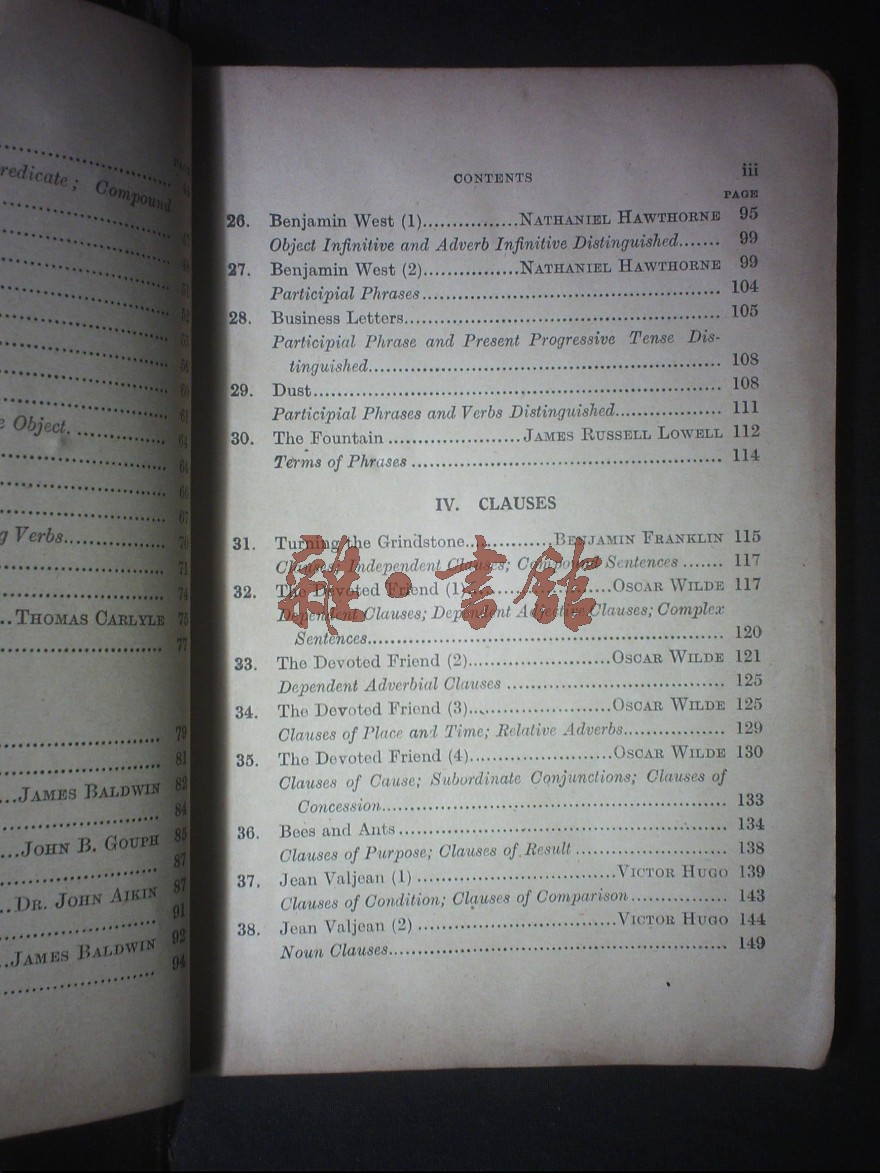 redicate; Compound
e Object
g Verbs
THOMAS CARLYLE 75
77
79
81
JAMES BALDWIN 82
84
JOHN B. GOUPH 85
87
DR. JOHN AIKIN 87
91
JAMES BALDWIN 92
94
CONTENTS iii
PAGE
26. Benjamin West (1)................NATHANIEL HAWTHORNE 95
Object Infinitive and Adverb Infinitive Distinguished....... 99
27. Benjamin West (2)................NATHANIEL HAWTHORNE 99
Participial Phrases.................................................. 104
28. Business Letters..................................................... 105
Participial Phrase and Present Progressive Tense Dis-
tinguished........................................................... 108
29. Dust.................................................................... 108
Participial Phrases and Verbs Distinguished.................. 111
30. The Fountain ......................JAMES RUSSELL LOWELL 112
Terms of Phrases .................................................... 114
IV. CLAUSES
31. Turning the Grindstone..............BENJAMIN FRANKLIN 115
Clauses; Independent Clauses; Compound Sentences ....... 117
32. The Devoted Friend (1)........................OSCAR WILDE 117
Dependent Clauses; Dependent Adjective Clauses; Complex
Sentences............................................................ 120
33. The Devoted Friend (2)........................OSCAR WILDE 121
Dependent Adverbial Clauses .................................... 125
34. The Devoted Friend (3)........................OSCAR WILDE 125
Clauses of Place and Time; Relative Adverbs................. 129
35. The Devoted Friend (4)........................OSCAR WILDE 130
Clauses of Cause; Subordinate Conjunctions; Clauses of
Concession.......................................................... 133
36. Bees and Ants....................................................... 134
Clauses of Purpose; Clauses of Result ......................... 138
37. Jean Valjean (1) .................................VICTOR HUGO 139
Clauses of Condition; Clauses of Comparison................ 143
38. Jean Valjean (2) .................................VICTOR HUGO 144
Noun Clauses......................................................... 149
雜·書館